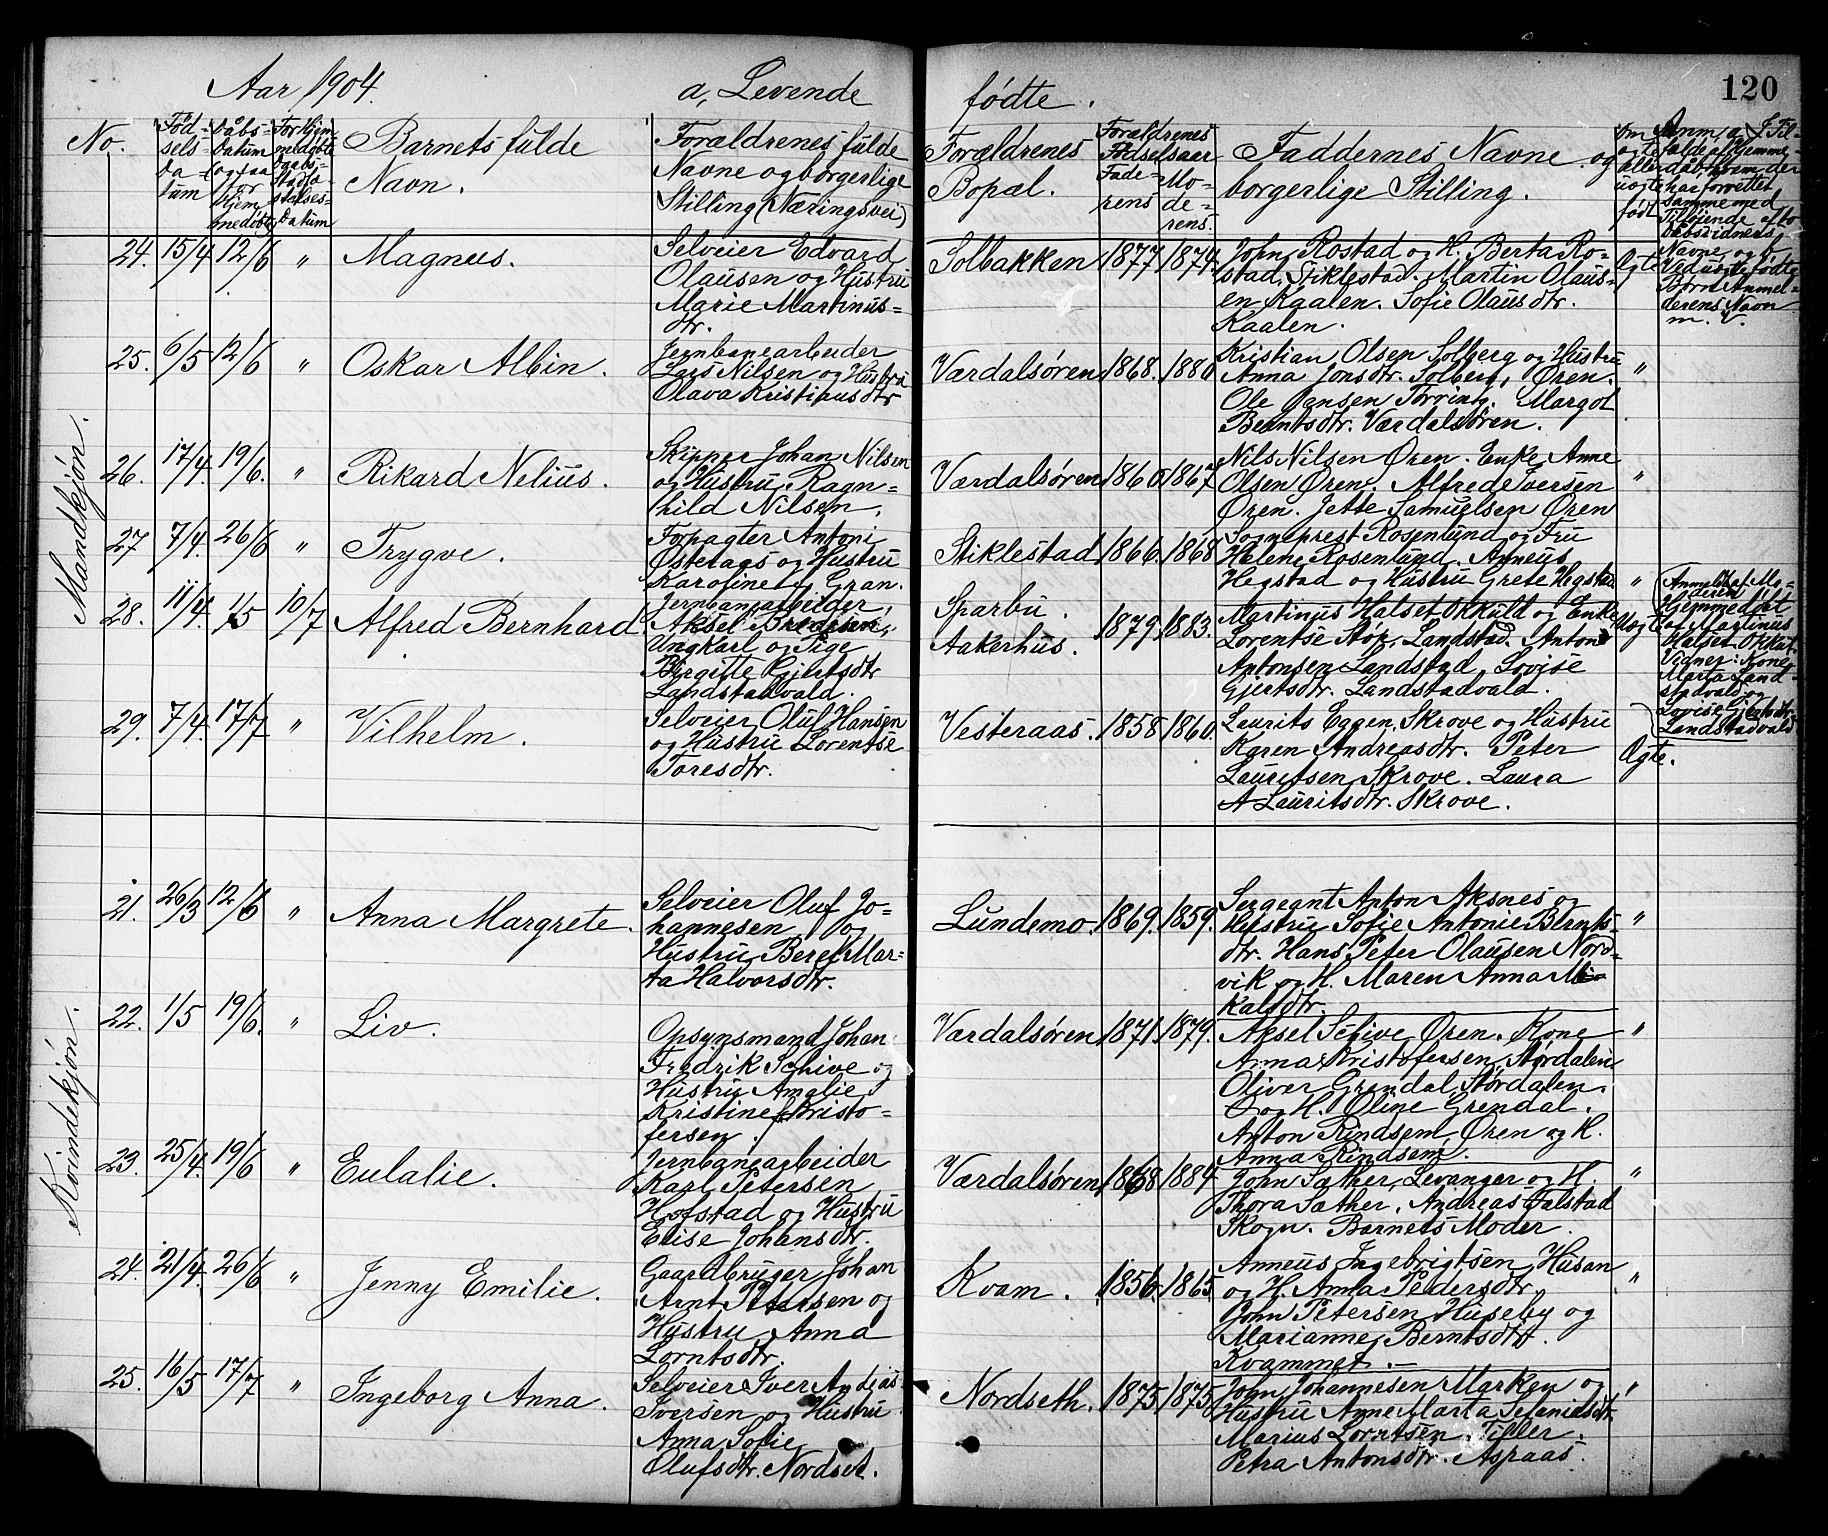 Aar 1904.
a, Levende
fødte.
120
No.
Fød-
sels-
da-
tum
Dåbs-
Datum
(ogsaa
for
hjem
medøbte
For hjem
medøbte
Daabs-
Stadfæ-
stelses-
Datum
Barnets fulde
Navn.
Forældrenes fulde
Navne og borgerlige
Stilling (Næringsvei)
Forældrenes
Bopæl.
Forældrenes
Fødselsaar
Fade-
rens
Mo-
de-
rens.
Faddernes Navne og
borgerlige Stilling.
Om
ægte
eller
uægte
født
Mandkjøn.
24. 15/4 12/6 " Magnus.
Selveier Edvard
Olausen og Hustru
Marie Martinus-
dtr.
Solbakken 1877 1874.
John Rostad og H. Berta Ro-
stad, Stiklestad. Martin Olaus-
en Kaalen. Sofie Olausdtr.
Kaalen.
Ægte
25. 6/5 12/6 " Oskar Albin.
Jernbanearbeider
Lars Nilsen og Hustru
Olava Kristiansdtr
Værdalsøren 1868. 1880
Kristian Olsen Solberg og Hustru
Anna Jonsdtr. Solberg, Øren.
Ole Jensen Tørring. Margot
Berntsdtr. Værdalsøren.
"
26. 17/4. 19/6. " Rikard Nelius.
Skipper Johan Nilsen
og Hustru Ragn-
hild Nilsen.
Værdalsøren 1860 1867
Nils Nilsen Øren. Enke Anne
Olsen Øren. Alfred Iversen
Øren. Jette Samuelsen Øren
"
27 7/4. 26/6 " Trygve.
Forpagter Antoni
Østeraas og Hustru
Karoline f. Gran.
Stiklestad 1866. 1868
Sogneprest Rosenlund og Fru
Helene Rosenlund. Anneus
Hegstad og Hustru Grete Hegstad
"
28. 11/4. 1/5 10/7 Alfred Bernhard
Jernbanearbeider,
Aksel Bredesen,
Ungkarl og Pige
Birgitte Gjertsdtr
Landstadvald.
Sparbu.
Aakerhus.
1879. 1883.
Martinus Halset Okkuld og Enke
Lorentse Støp, Landstad. Anton
Antonsen Landstad, Lovise
Gjertsdtr. Landstadvald.
Uægte
Anmeldt af Mo-
deren
Hjemmedøbt
af Martinus
Halset Okkul.
Vidner: Kone
Marta Land-
stadvald og
Lovise Gjertsdtr.
Landstadvald
29. 7/4. 17/7 " Vilhelm.
Selveier Oluf Hansen
og Hustru Lorentse
Toresdtr.
Vesteraas. 1858 1860.
Laurits Eggen, Skrove og Hustru
Karen Andreasdtr. Peter
Lauritsen Skrove. Laura
A Lauritsdtr. Skrove.
Ægte.
Kvindekjøn.
21. 26/3 12/6 " Anna Margrete.
Selveier Oluf Jo-
hannesen og
Hustru Beret Mar-
ta Halvorsdtr.
Lundemo. 1869. 1859.
Sergeant Anton Aksnes og
Hustru Sofie Antonie Bernts-
dtr. Hans Peter Olausen Nord-
vik og H. Maren Anna Mi-
kalsdtr.
"
22. 1/5 19/6. " Liv.
Opsynsmand Johan
Fredrik Schive og
Hustru Amalie
Kristine Kristo-
fersen.
Værdalsøren 1871. 1879.
Aksel Schive Øren. Kone
Anna Kristofersen, Størdalen
Oliver Grendal, Størdalen.
og H. Oline Grendal.
Anton Rindsem, Øren og H.
Anna Rindsem.
"
23. 25/4. 19/6 " Eulalie.
Jernbanearbeider
Karl Petersen
Hofstad og Hustru
Elise Johansdtr.
Værdalsøren 1868 1884
John Sæther, Levanger og H.
Thora Sæther, Andreas Falstad
Skogn. Barnets Moder.
"
24. 21/4. 26/6 " Jenny Emilie.
Gaardbruger Johan
Arnt Petersen og
Hustru Anna
Lorntsdtr.
Kvam. 1856 1865
Anneus Ingebrigtsen, Husan
og H. Anna Pedersdtr,
John Petersen Huseby og
Marianne Berntsdtr.
Kvammet.
"
25. 16/5 17/7 " Ingeborg Anna.
Selveier Iver Andras-
Iversen og Hustru
Anna Sofie
Olufsdtr. Nordset.
Nordseth. 1875 1875
John Johannesen Marken og
Hustru Anne Marta
Marius Lorntsen Tiller.
Petra Antonsdtr. Aspaas.
"